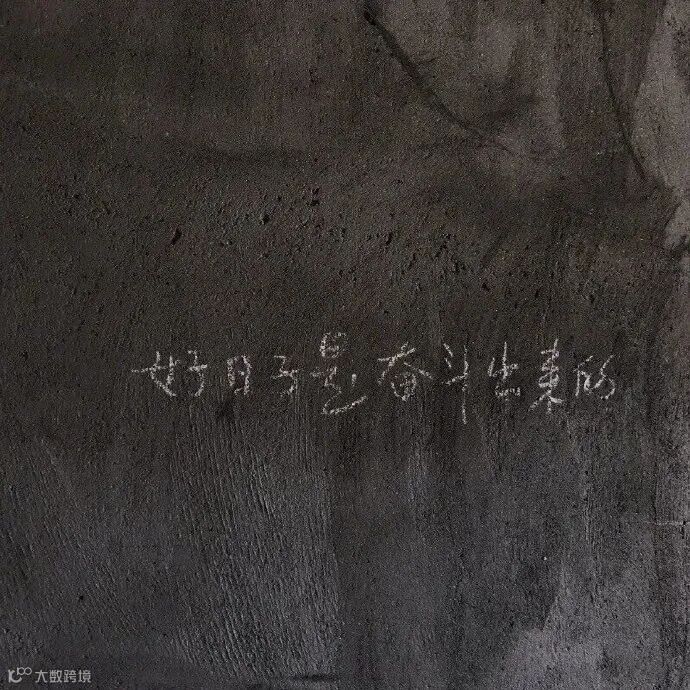 好日子是奋斗出来的
大数跨境